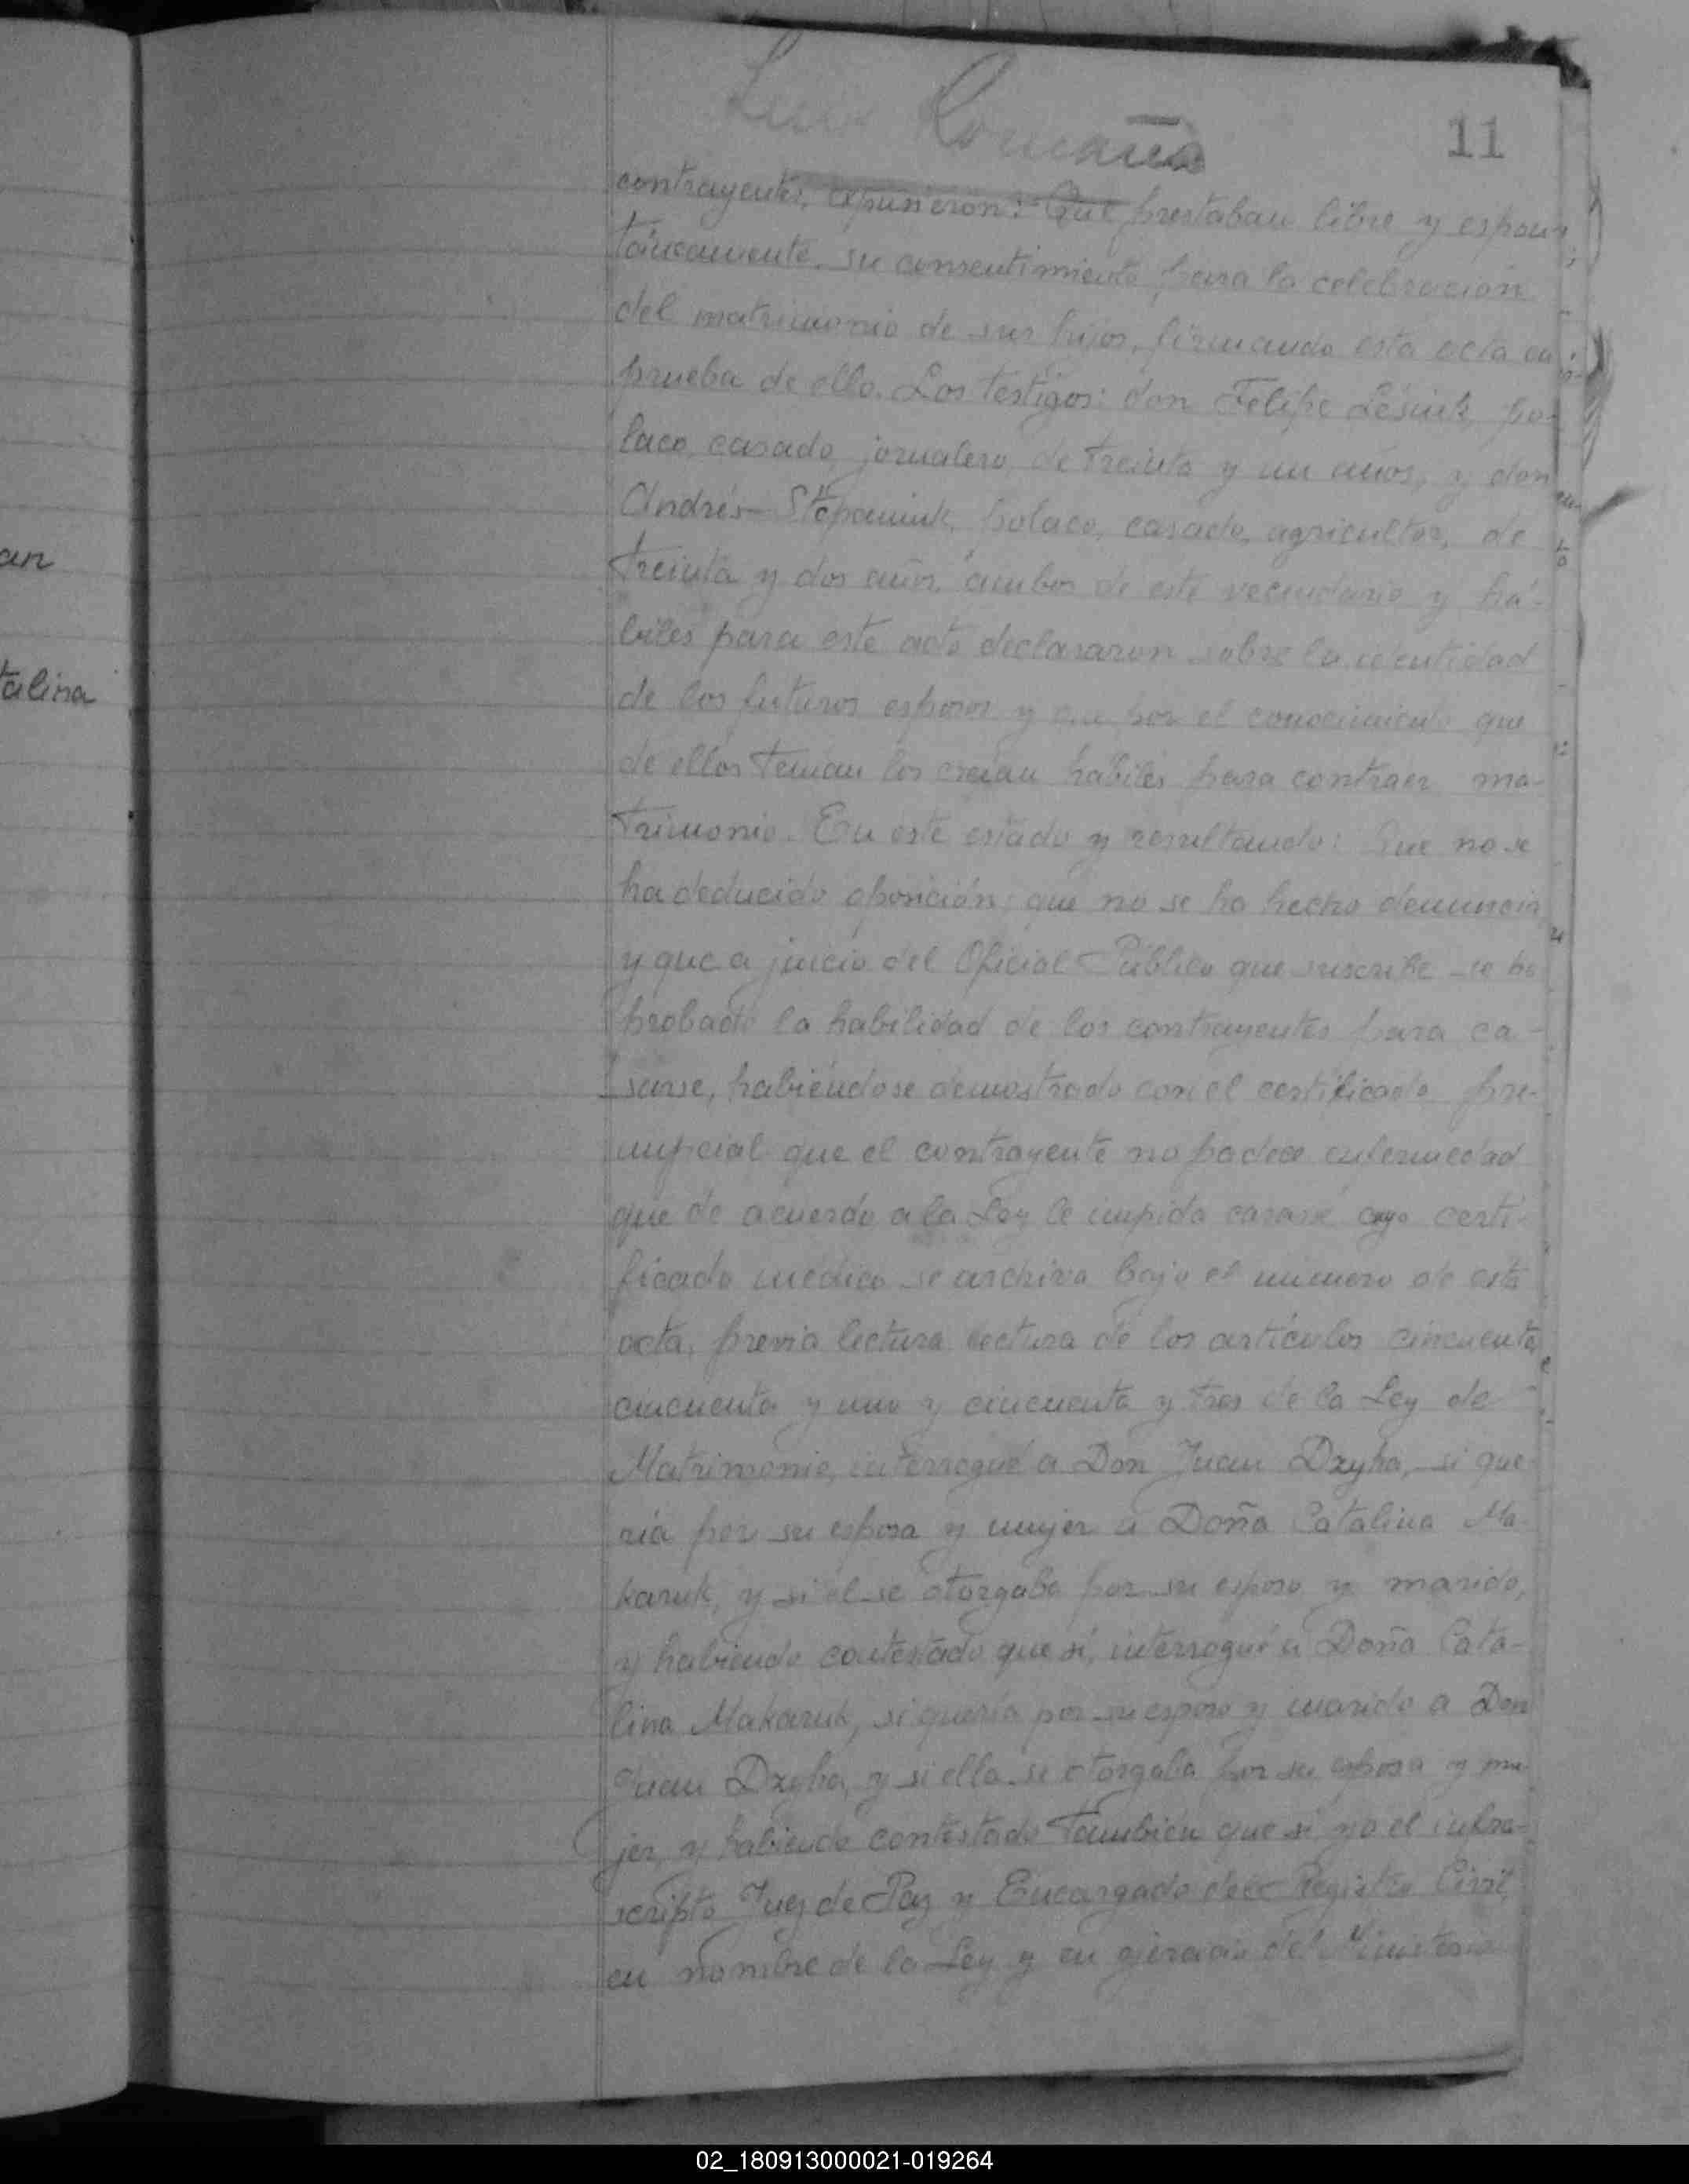 Luis Romaña
11
contrayentes, expusieron: Que prestaban libre y espon-
táneamente su consentimiento para la celebración
del matrimonio de sus hijos, firmando esta acta en
prueba de ello. Los testigos: don Felipe Lesiuk, po-
laco, casado, jornalero, de treinta y un años, y don
Andrés Stepaniuk, polaco, casado, agricultor, de
treinta y dos años, ambos de este vecindario y há-
biles para este acto declararon sobre la identidad
de los futuros esposos y que por el conocimiento que
de ellos tenían los creían hábiles para contraer ma-
trimonio. En este estado y resultando: Que no se
ha deducido oposición; que no se ha hecho denuncia
y que a juicio del Oficial Público que suscribe se ha
probado la habilidad de los contrayentes para ca-
sarse, habiéndose demostrado con el certificado pre-
nupcial que el contrayente no padece enfermedad
que de acuerdo a la Ley le impida casarse cuyo certi-
ficado médico se archiva bajo el número de esta
acta, previa lectura lectura de los artículos cincuenta,
cincuenta y uno y cincuenta y tres de la Ley de
Matrimonio, interrogué a Don Juan Dzyha, si que-
ría por su esposa y mujer a Doña Catalina Ma-
karuk, y si él se otorgaba por su esposo y marido,
y habiendo contestado que sí, interrogué a Doña Cata-
lina Makaruk, si quería por su esposo y marido a Don
Juan Dzyha, y si ella se otorgaba por su esposa y mu-
jer, y habiendo contestado también que sí yo el infra-
scripto Juez de Paz y Encargado del Registro Civil,
en nombre de la Ley y en ejercicio del Ministerio
an
talina
02_180913000021-019264